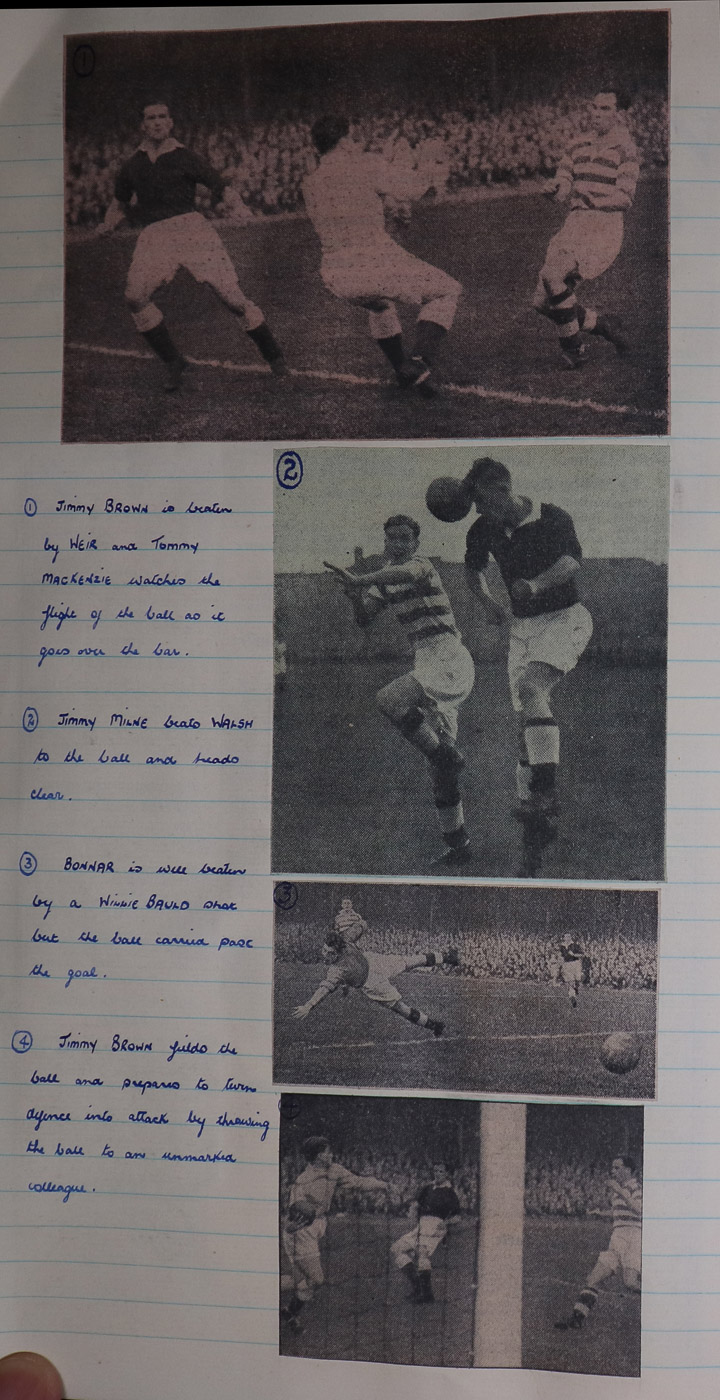 1
2
3
① Jimmy BROWN is beaten
by WEIR and Tommy
MACKENZIE watches the
flight of the ball as it
goes over the bar.
② Jimmy MILNE beats WALSH
to the ball and heads
clear.
③ BONNAR is well beaten
by a WINNIE BAULD shot
but the ball carried past
the goal.
④ Jimmy BROWN fields the
ball and prepares to turn
defence into attack by throwing
the ball to an unmarked
colleague.